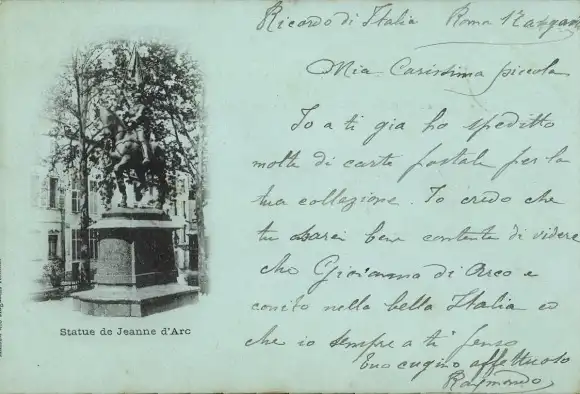 Ricordo di Italia Roma 12
Mia Carissima piccola
Io a ti gia ho spedito
molte di carte postale per la
tua collezione. Io credo che
tu sarei ben contente di videre
che Giovanna di Arco e
nella bella Italia ed
che io sempre a ti penso
Tuo cugino affettuoso
Raymondo
Statue de Jeanne d'Arc